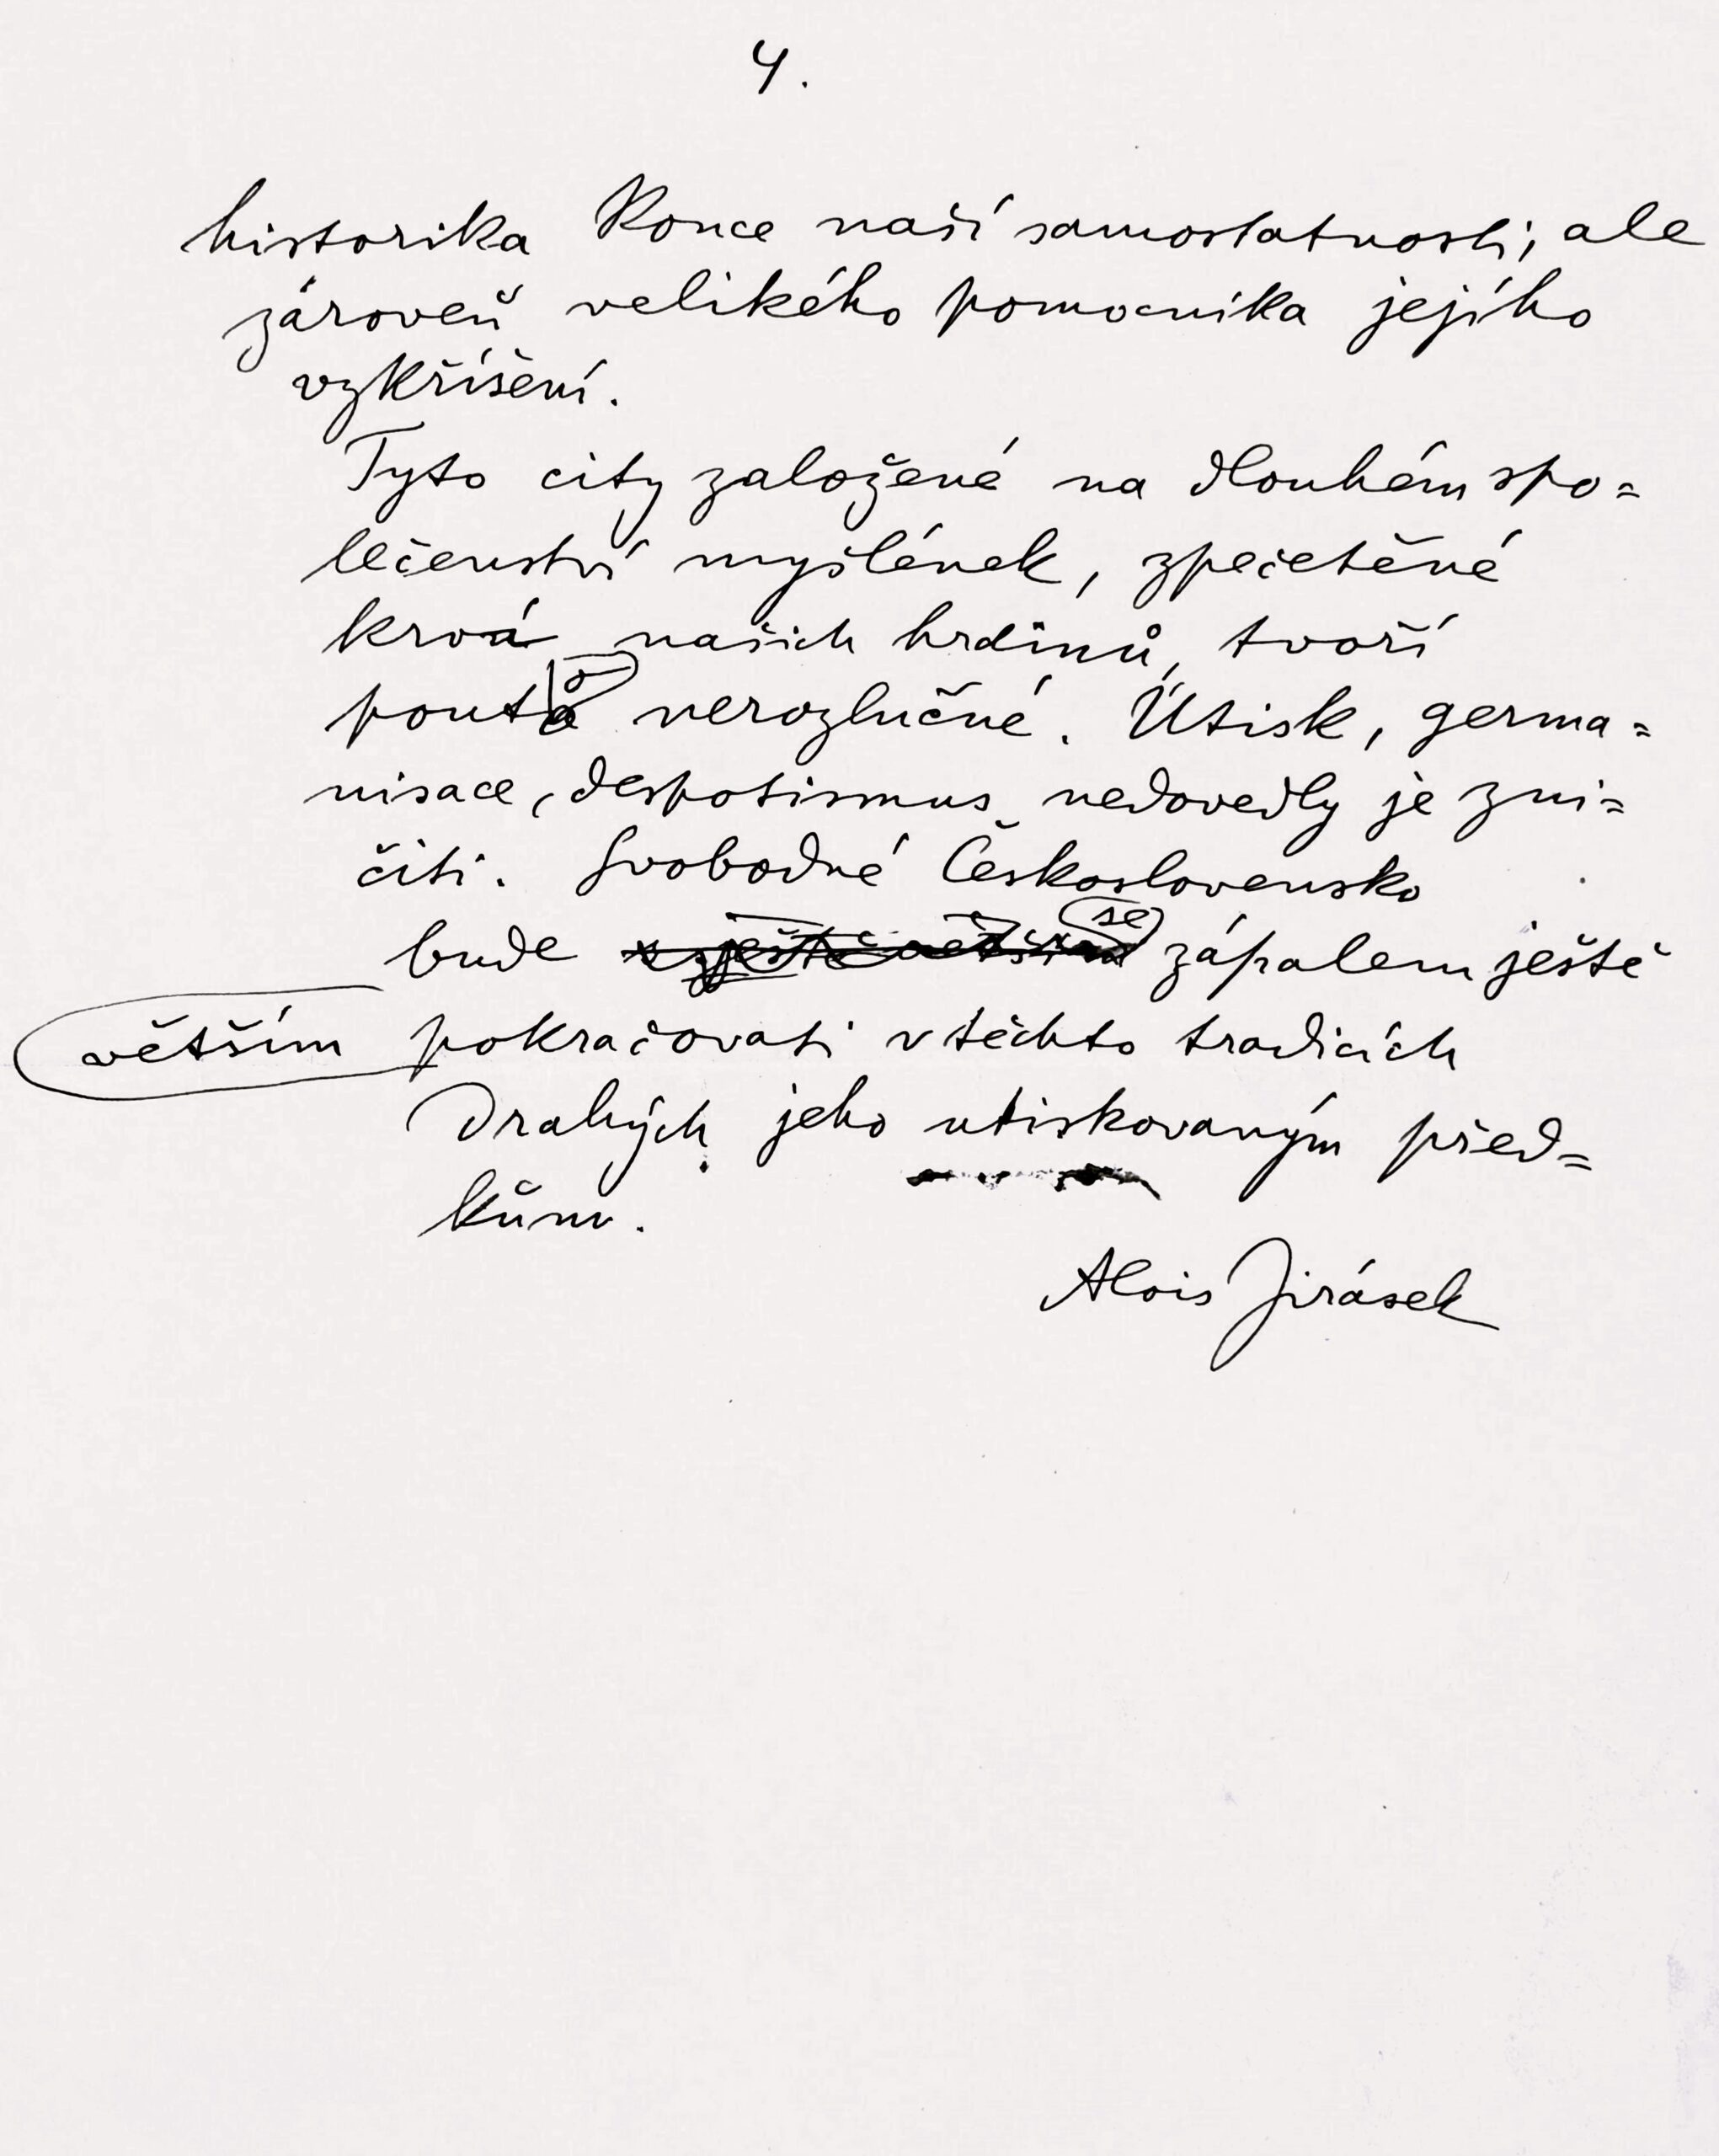 4.
historika konce naší samostatnosti, ale
zároveň velikého pomocníka jejího
vzkříšení.
Tyto city založené na dlouhém spo=
lečenství myšlének, zpečetěné
krvá našich hrdinů, tvoří
pouto nerozlučné. Útisk, germa=
nisace, despotismus nedovedly je zni=
čiti. Svobodné Československo
bude se zápalem ještě
větším pokračovati v těchto tradicích
drahých jeho utiskovaným před=
kům.
Alois Jirásek